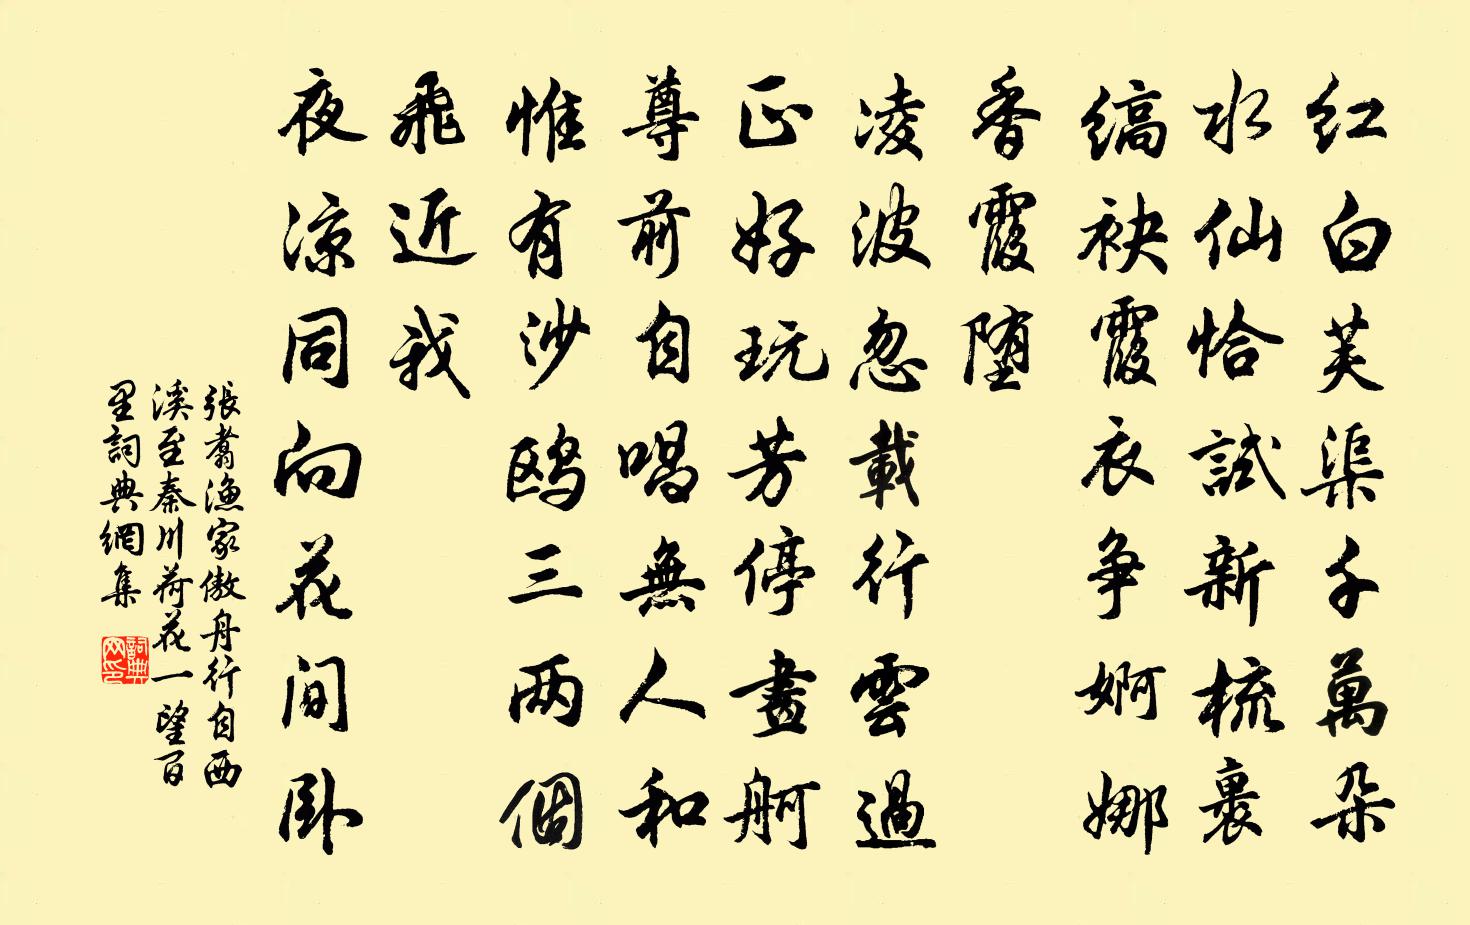 红白芙渠千萬朵
水仙恰試新梳裹
缟袂霞衣争婀娜
香霞堕
凌波忽載行雲過
正好玩芳停畫舸
尊前自唱無人和
惟有沙鸥三两個
飛近我
夜凉同向花间卧
張翥漁家傲舟行自西
溪至秦川荷花一望百
里詞典網集
詞典
网印